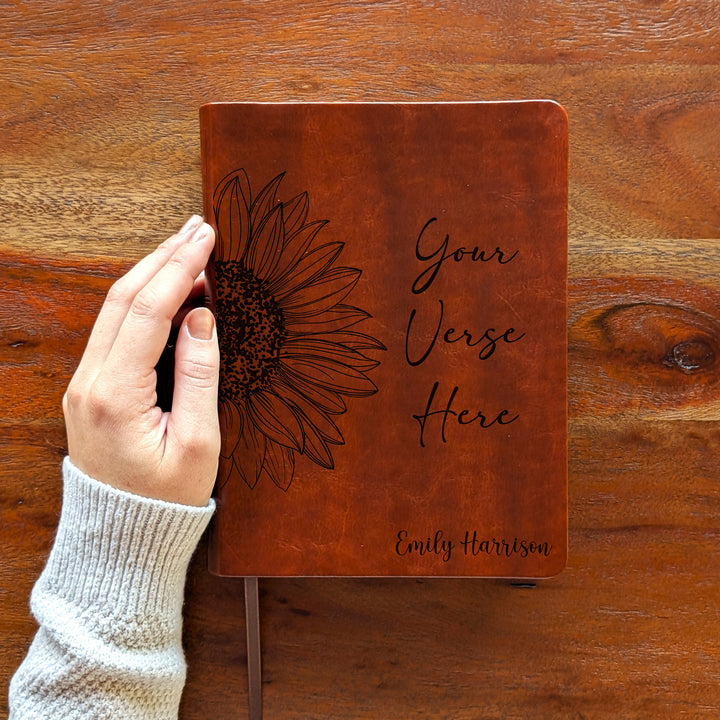 Your
Verse
Here
Emily Harrison